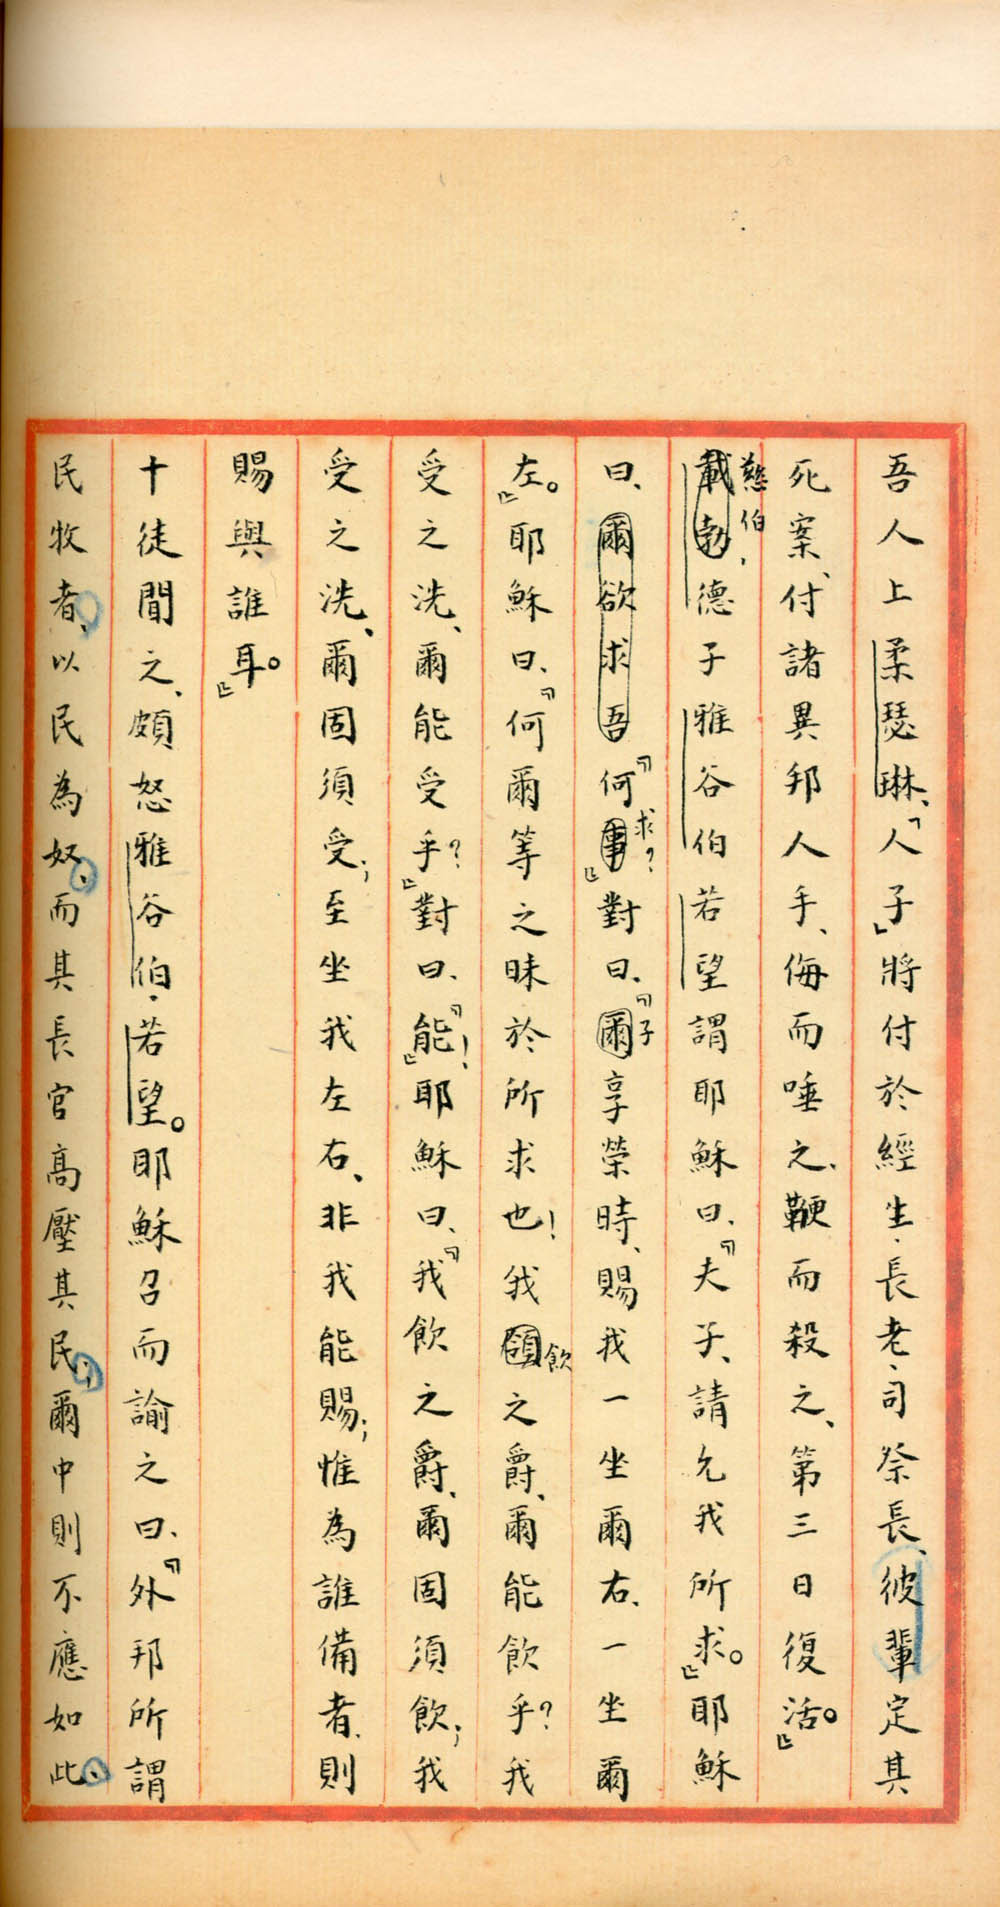 吾人上柔瑟琳、「人子」將付於經生、長老、司祭長、彼輩定其
死案、付諸異邦人手、侮而唾之、鞭而殺之、第三日復活。』
慈伯、
載勃德子雅谷伯若望謂耶穌曰、『夫子、請允我所求。』耶穌
曰、爾欲求吾『何事求?』對曰、『爾子享榮時、賜我一坐爾右、一坐爾
左。』耶穌曰、『何爾等之昧於所求也!我領飲之爵、爾能飲乎?我
受之洗、爾能受乎?』對曰、『能!』耶穌曰、『我飲之爵、爾固須飲;我
受之洗、爾固須受;至坐我左右、非我能賜;惟為誰備者、則
賜與誰耳。』
十徒聞之、頗怒雅谷伯、若望。耶穌召而諭之曰、『外邦所謂
民牧者、以民為奴、而其長官高壓其民;爾中則不應如此、